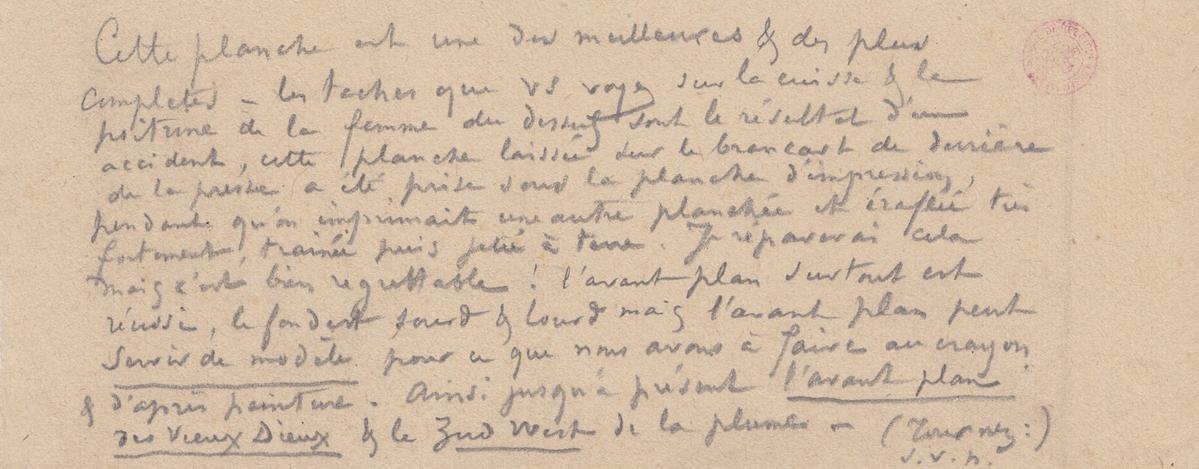 Cette planche est une des meilleures & des plus
complètes – les taches que vs voyez sur la cuisse & la
poitrine de la femme du dessus sont le résultat d'un
accident, cette planche laissée sur le brancart de derrière
de la presse a été prise sous la planche d'impression,
pendant qu'on imprimait une autre planche et éraflée très
fortement, trainée puis jetée à terre. Je réparerai cela
mais c'est bien regrettable ! l'avant plan surtout est
réussi, le fond est sourd & lourd mais l'avant plan peut
servir de modèle pour ce que nous avons à faire au crayon
& d'après peinture. Ainsi jusqu'à présent l'avant plan
des Vieux Dieux & le Zud West de la plume – (Tournez :)
s.v.p.